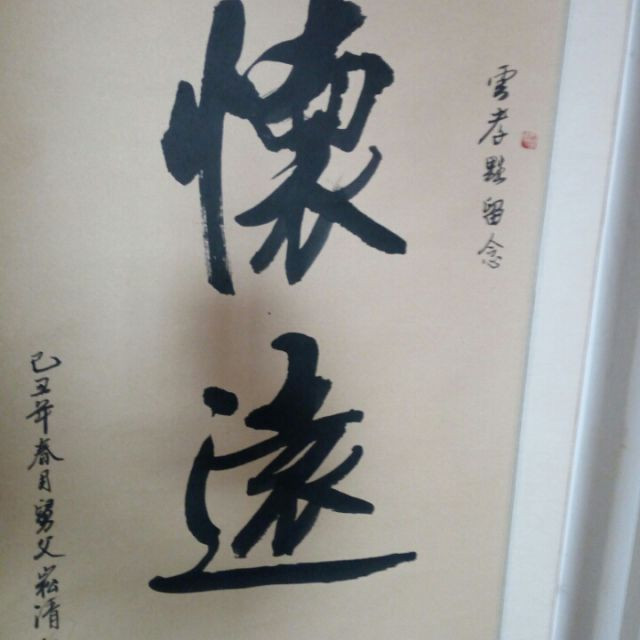 雲孝甥留念
懷遠
己丑年春月舅父崧清